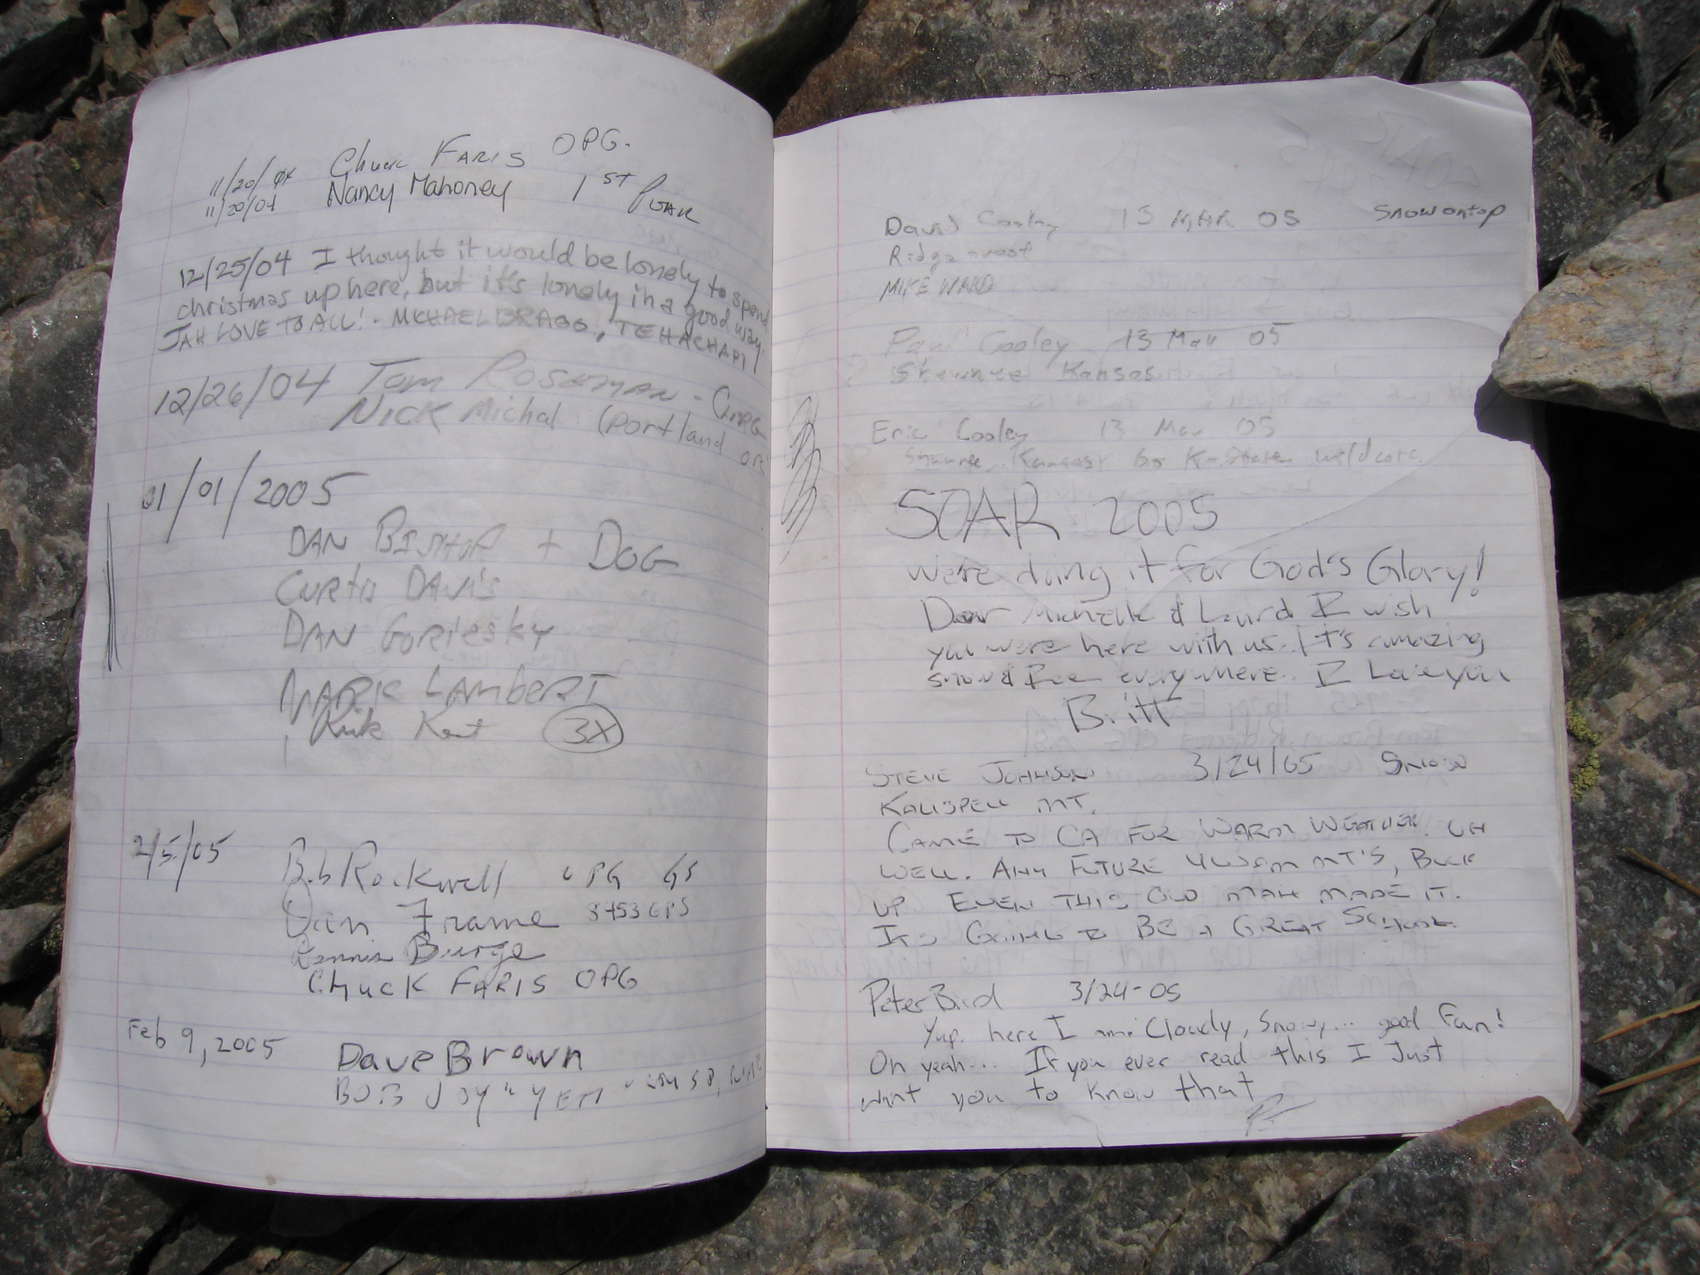 11/20/04 Chuck FARIS OPG.
11/20/04 Nancy Mahoney 1ST PEAK
12/25/04 I thought it would be lonely to spend
christmas up here, but it's lonely in a good way.
JAH LOVE TO ALL! - MICHAEL BRAGG, TEHACHAPI
12/26/04 Tom ROSEMAN -
NICK Michal (Portland OR
01/01/2005
DAN BISHOP + DOG
CURTIS DAVIS
DAN GORIESKY
MARK LAMBERT
Rick Kent 3X
2/5/05 Bob Rockwell OPG GS
Dan Frame 8453 GPS
Dennis Burge
CHUCK FARIS OPG
Feb 9, 2005 Dave Brown
BOB JOY "YETI"
David Cooley 13 MAR 05 SNOW ON TOP
Ridgecrest
MIKE WARD
Paul Cooley 13 Mar 05
Shawnee Kansas
Eric Cooley 13 Mar 05
Shawnee, Kansas Go K-State wildcats
SOAR 2005
we're doing it for God's Glory!
Dear Michelle & I wish
you were here with us. It's amazing
snow & everywhere. I Love you
Britt
STEVE JOHNSON 3/24/05 SNOW
KALISPELL MT.
CAME TO CA FOR WARM WEATHER. OH
WELL. ANY FUTURE MT'S, BUCK
UP EVEN THIS OLD MAN MADE IT.
ITS GOING TO BE A GREAT
Peter Bird 3/24-05
Yup, here I am: Cloudy, Snowy... good Fun!
Oh yeah... If you ever read this I Just
want you to know that